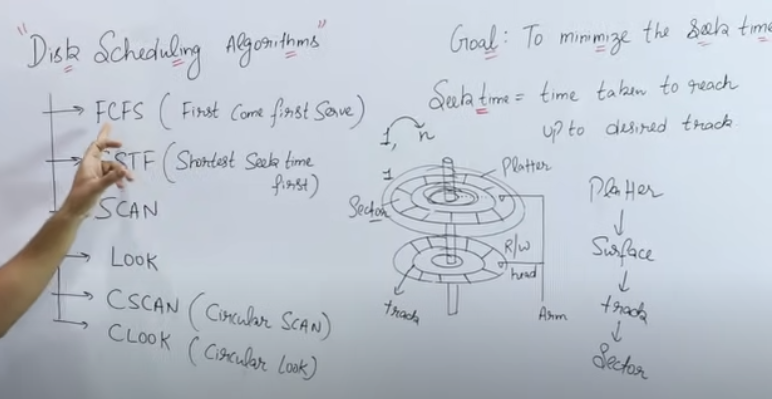 "Disk Scheduling Algorithms"
FCFS (First Come first Serve)
SSTF (Shortest Seek time
first)
SCAN
LOOK
CSCAN (Circular SCAN)
CLOOK (Circular Look)
Goal: To minimize the Seek time
Seek time = time taken to reach
up to desired track.
1, n
1
Platter
Sector
R/W
head
track
Arm
Platter
Surface
track
Sector